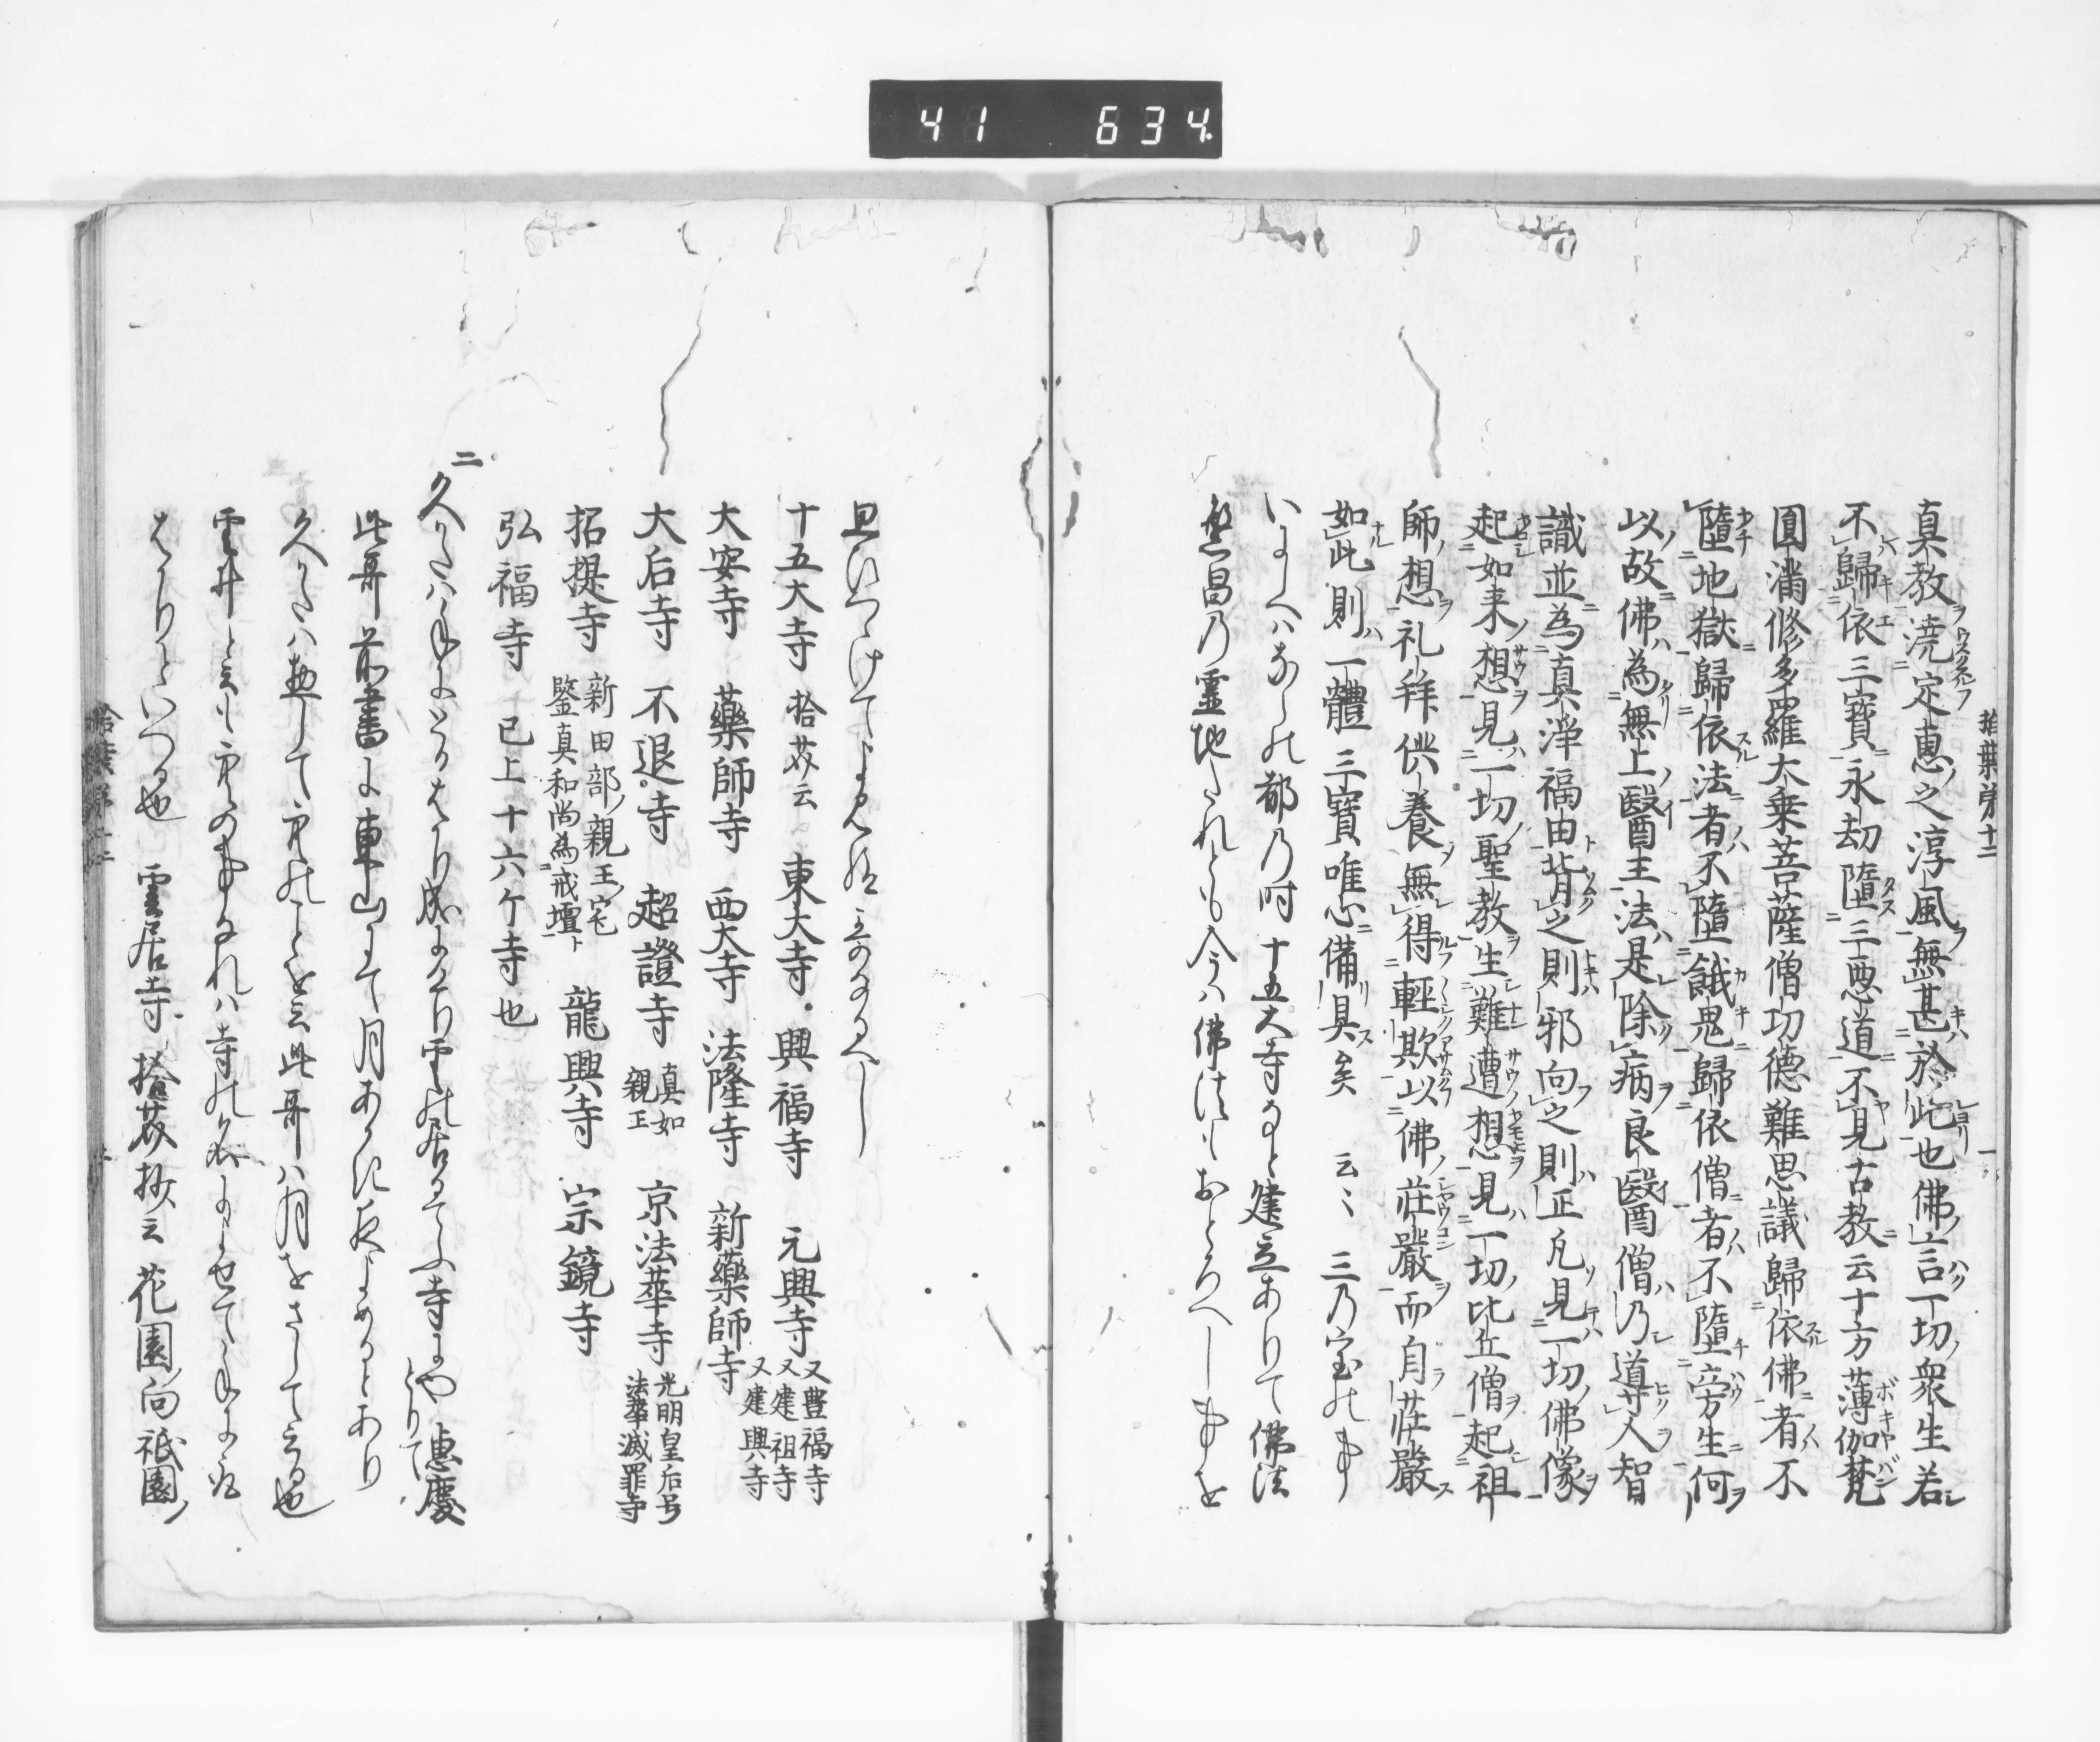 41 634
拾葉第十二 一
真教澆定恵之淳風無甚於此也佛言一切衆生若
不歸依三寶永劫墮三悪道不見古教云十方薄伽梵
圓満修多羅大乗菩薩僧功徳難思議歸依佛者不
墮地獄歸依法者不墮餓鬼歸依僧者不墮旁生何
以故佛為無上醫王法是除病良醫僧乃道寸人智
識並為真淨福由背之則邪向之則正凡見一切佛像
起如来想見一切聖教生難遭想見一切比丘僧起祖
師想礼拜供養無得輕欺以佛荘嚴而自荘嚴
如此則一體三寶唯心備具矣 云〻 三乃宝の事
いにしへハならの都乃時十五大寺なと建立ありて佛法
繁昌乃靈地たれとも今ハ佛法もおとろへし事を
思ひつゝけてよめる哥なるへし
十五大寺 拾芥云 東大寺 興福寺 元興寺 又豊福寺 又建祖寺 又建興寺
大安寺 藥師寺 西大寺 法隆寺 新藥師寺
大后寺 不退寺 超證寺 真如親王 京法華寺 光明皇后号法華滅罪寺
招提寺 新田部ノ親王ノ宅 鑒真和尚為戒壇ト 龍興寺 宗鏡寺
弘福寺 已上十六ケ寺也
二
久かたハ手にとるはかり成にけり雲の居るてふ寺にやとりて 恵慶
此哥前書に東山にて月あかき夜よめるとあり
久かたハ惣して空のことを云此哥ハ月をさして云る也
雲井と云も空の事なれハ寺の名によせて手に取
はかりといへる也 雲居寺 拾芥抄云 花園向祇園ノ